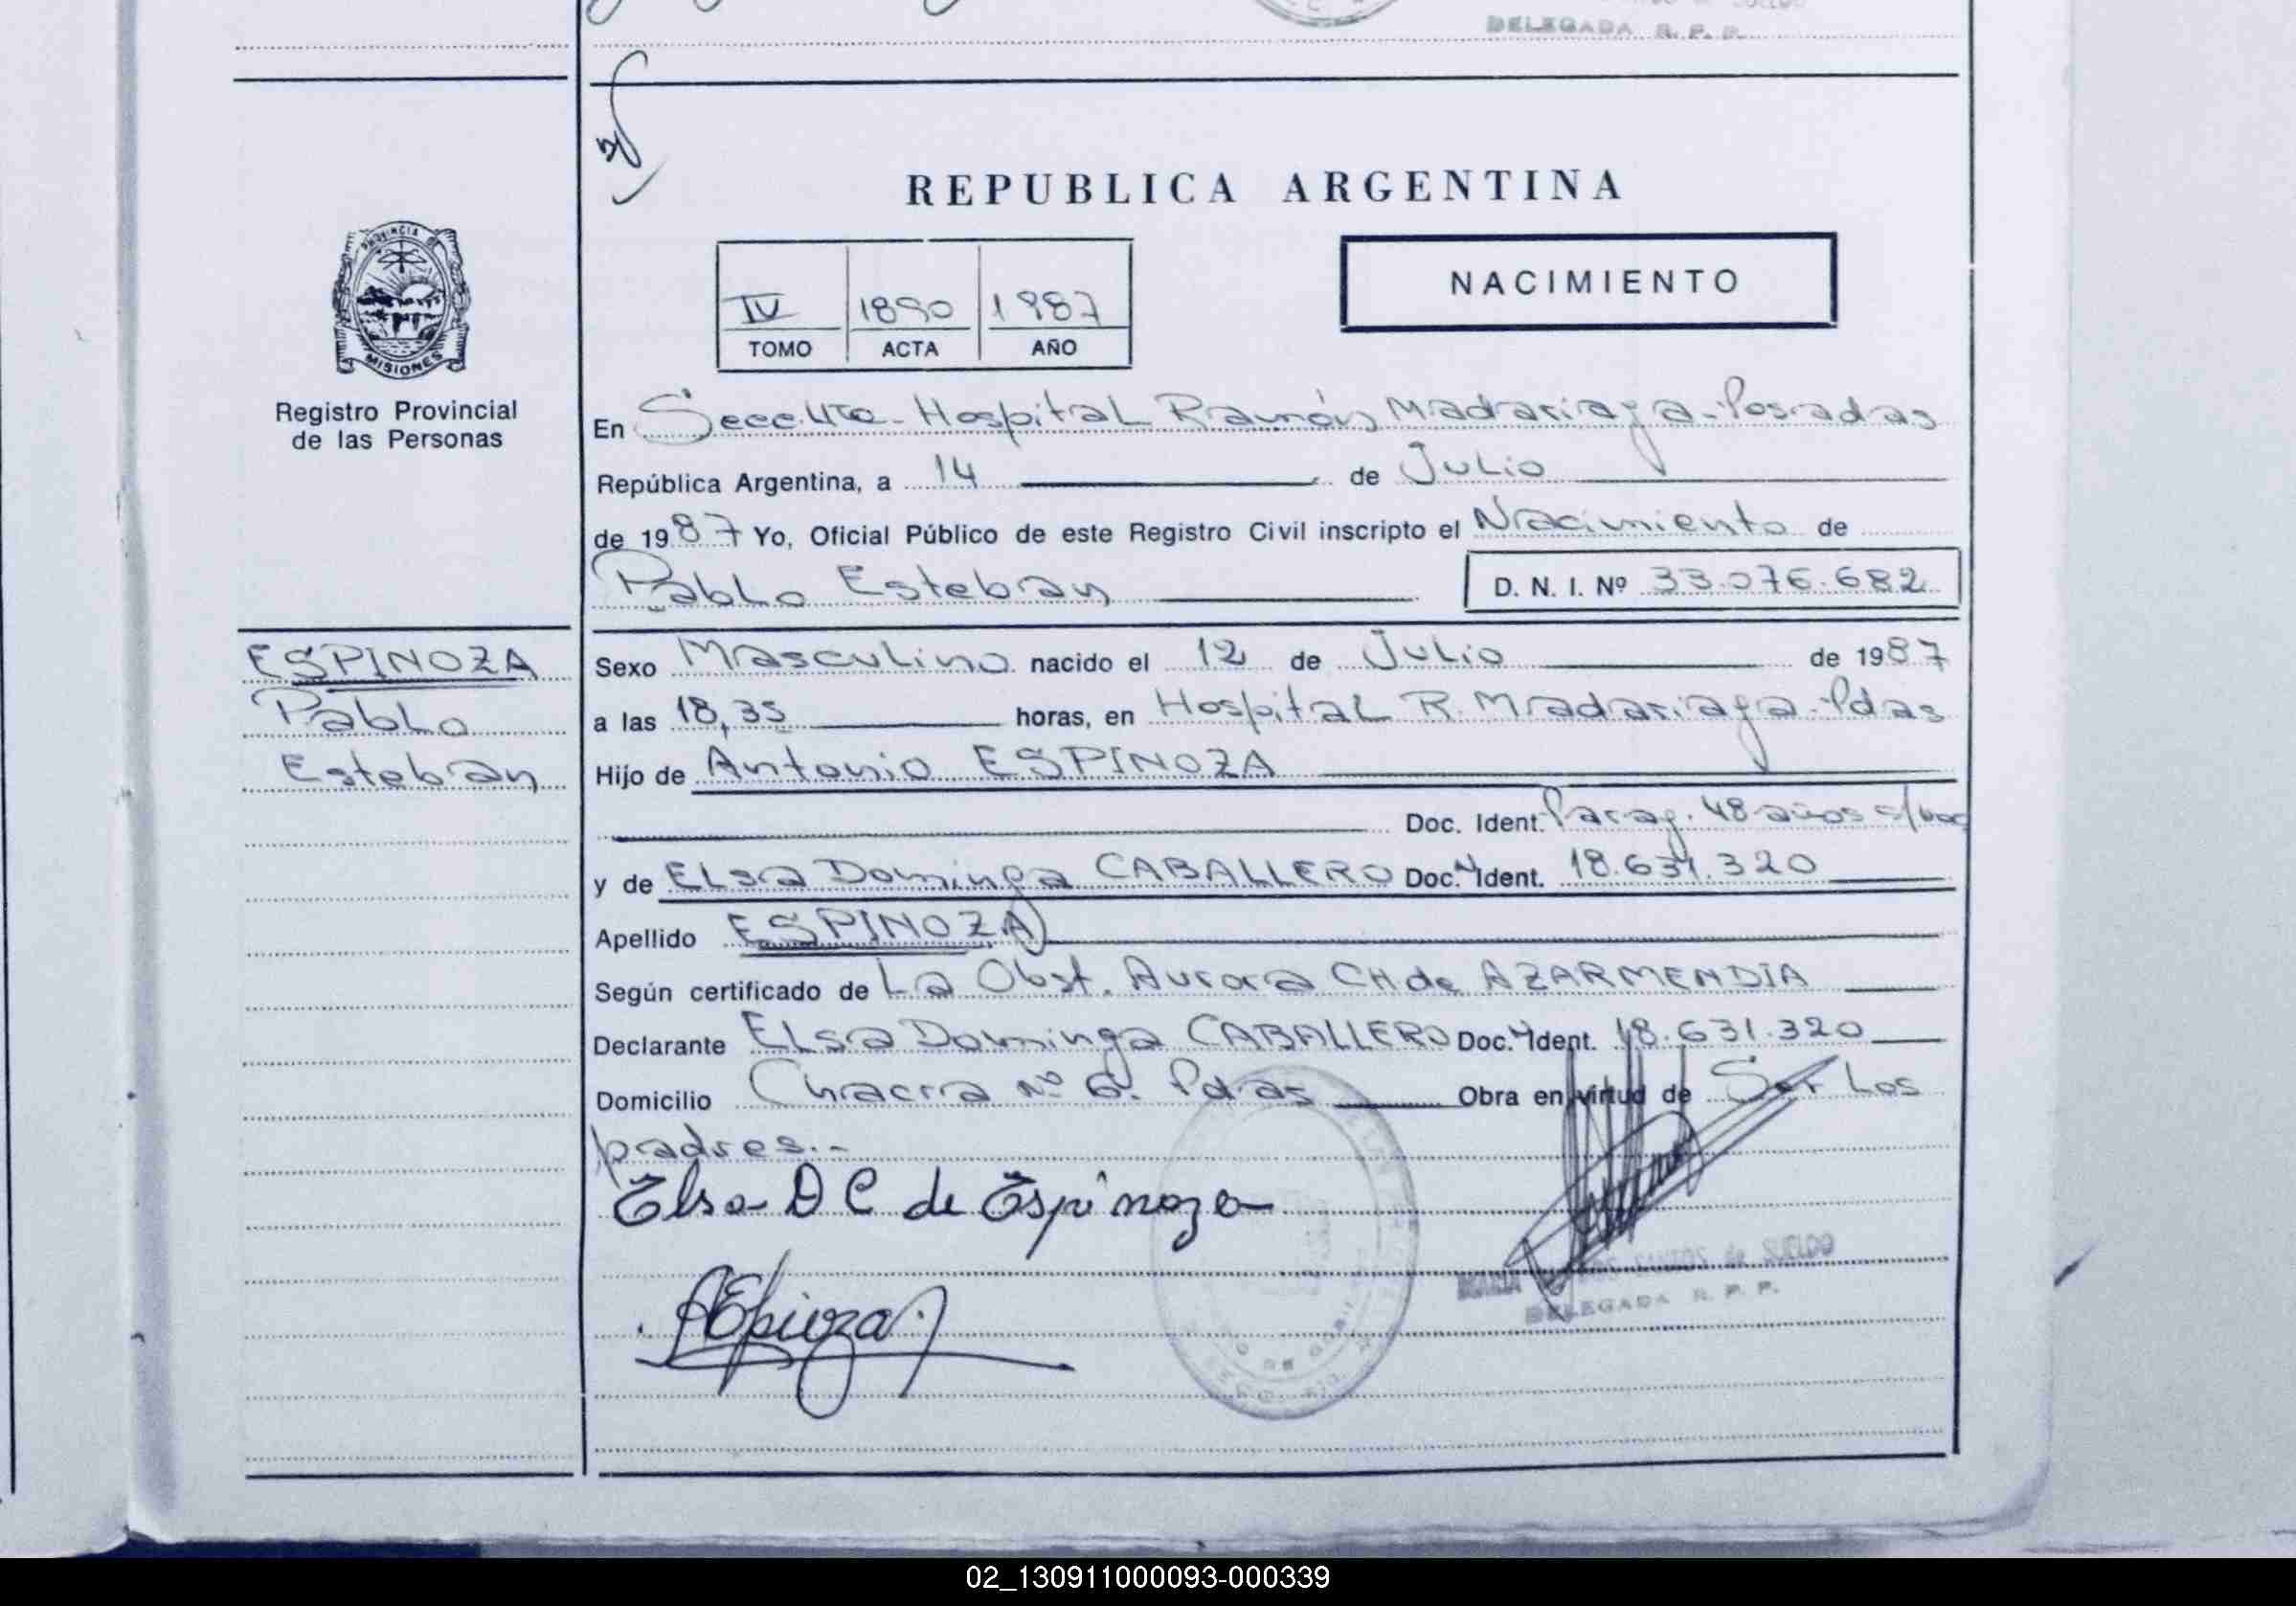 DELEGADA R. P. P.
REPUBLICA ARGENTINA
NACIMIENTO
IV 1890 1987
TOMO ACTA AÑO
PROVINCIA DE
MISIONES
Registro Provincial
de las Personas
En Secc. 4ta - Hospital Ramón Madariaga - Posadas
República Argentina, a 14 de Julio
de 1987 Yo, Oficial Público de este Registro Civil inscripto el Nacimiento de
Pablo Esteban D. N. I. Nº 33.076.682
ESPINOZA
Pablo
Esteban
Sexo Masculino nacido el 12 de Julio de 1987
a las 18,35 horas, en Hospital R. Madariaga - Pdas
Hijo de Antonio ESPINOZA
Doc. Ident. Parag. 48 años s/doc
y de Elsa Dominga CABALLERO Doc. Ident. 18.631.320
Apellido ESPINOZA
Según certificado de La Obst. Aurora CH de AZARMENDIA
Declarante Elsa Dominga CABALLERO Doc. Ident. 18.631.320
Domicilio Chacra Nº 6. Pdas Obra en virtud de Ser Los
padres.-
Elsa D C de Espinoza
MARIA SANTOS de SUELDO
DELEGADA R. P. P.
02_130911000093-000339